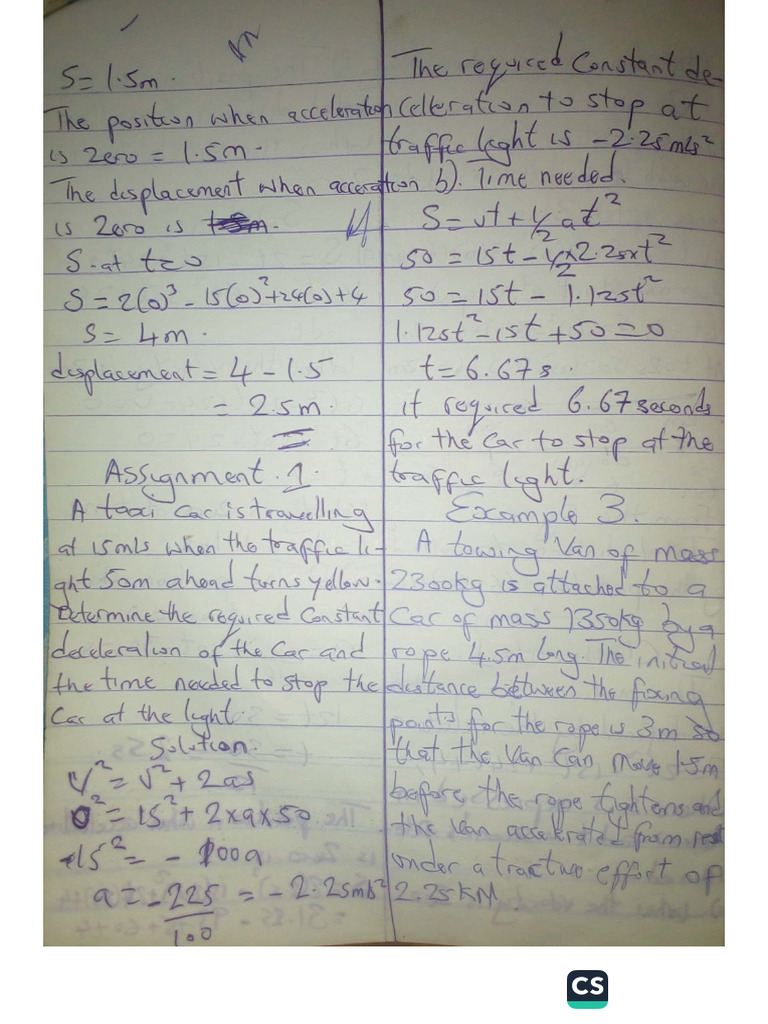 S = 1.5m.
The position when acceleration
is zero = 1.5m.
The displacement when acceration
is zero is
S at t=0
S = 2(0)³ - 15(0)² + 24(0) + 4
S = 4m.
displacement = 4 - 1.5
= 2.5m.
Assignment 1.
A taxi car is travelling
at 15m/s when the traffic li-
ght 50m ahead turns yellow.
Determine the required constant
deceleration of the car and
the time needed to stop the
car at the light.
Solution.
V² = U² + 2as
0² = 15² + 2×a×50
-15² = - 100a
a = -225/100 = -2.25m/s²
The required constant de-
celleration to stop at
traffic light is -2.25m/s²
b). Time needed.
S = ut + ½at²
50 = 15t - ½×2.25×t²
50 = 15t - 1.125t²
1.125t² - 15t + 50 = 0
t = 6.67s.
it required 6.67 seconds
for the car to stop at the
traffic light.
Example 3.
A towing van of mass
2300kg is attached to a
car of mass 1350kg by a
rope 4.5m long. The initial
distance between the fixing
points for the rope is 3m so
that the van can move 1.5m
before the rope tightens and
the van accelerated from rest
under a tractive effort of
2.25KN.
CS